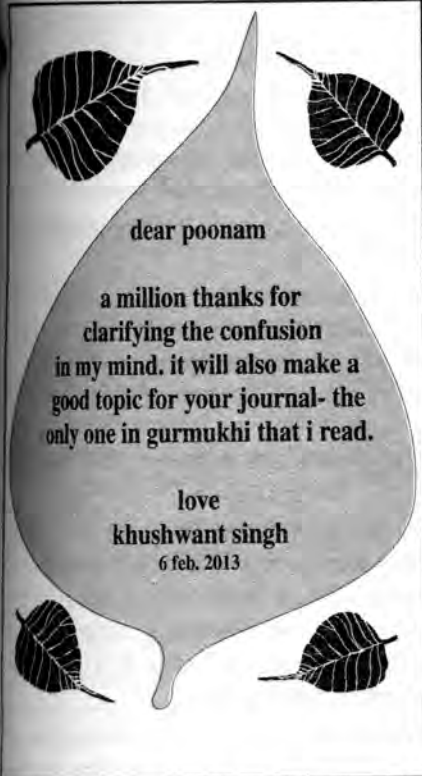 dear poonam
a million thanks for
clarifying the confusion
in my mind. it will also make a
good topic for your journal- the
only one in gurmukhi that i read.
love
khushwant singh
6 feb. 2013